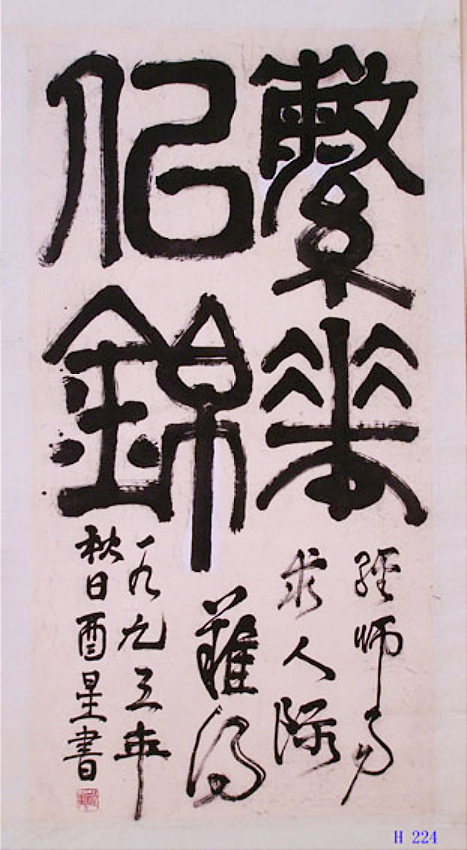 繁華
似錦
經師易
求人師
難得
一九九三年
秋日酉星書
H 224